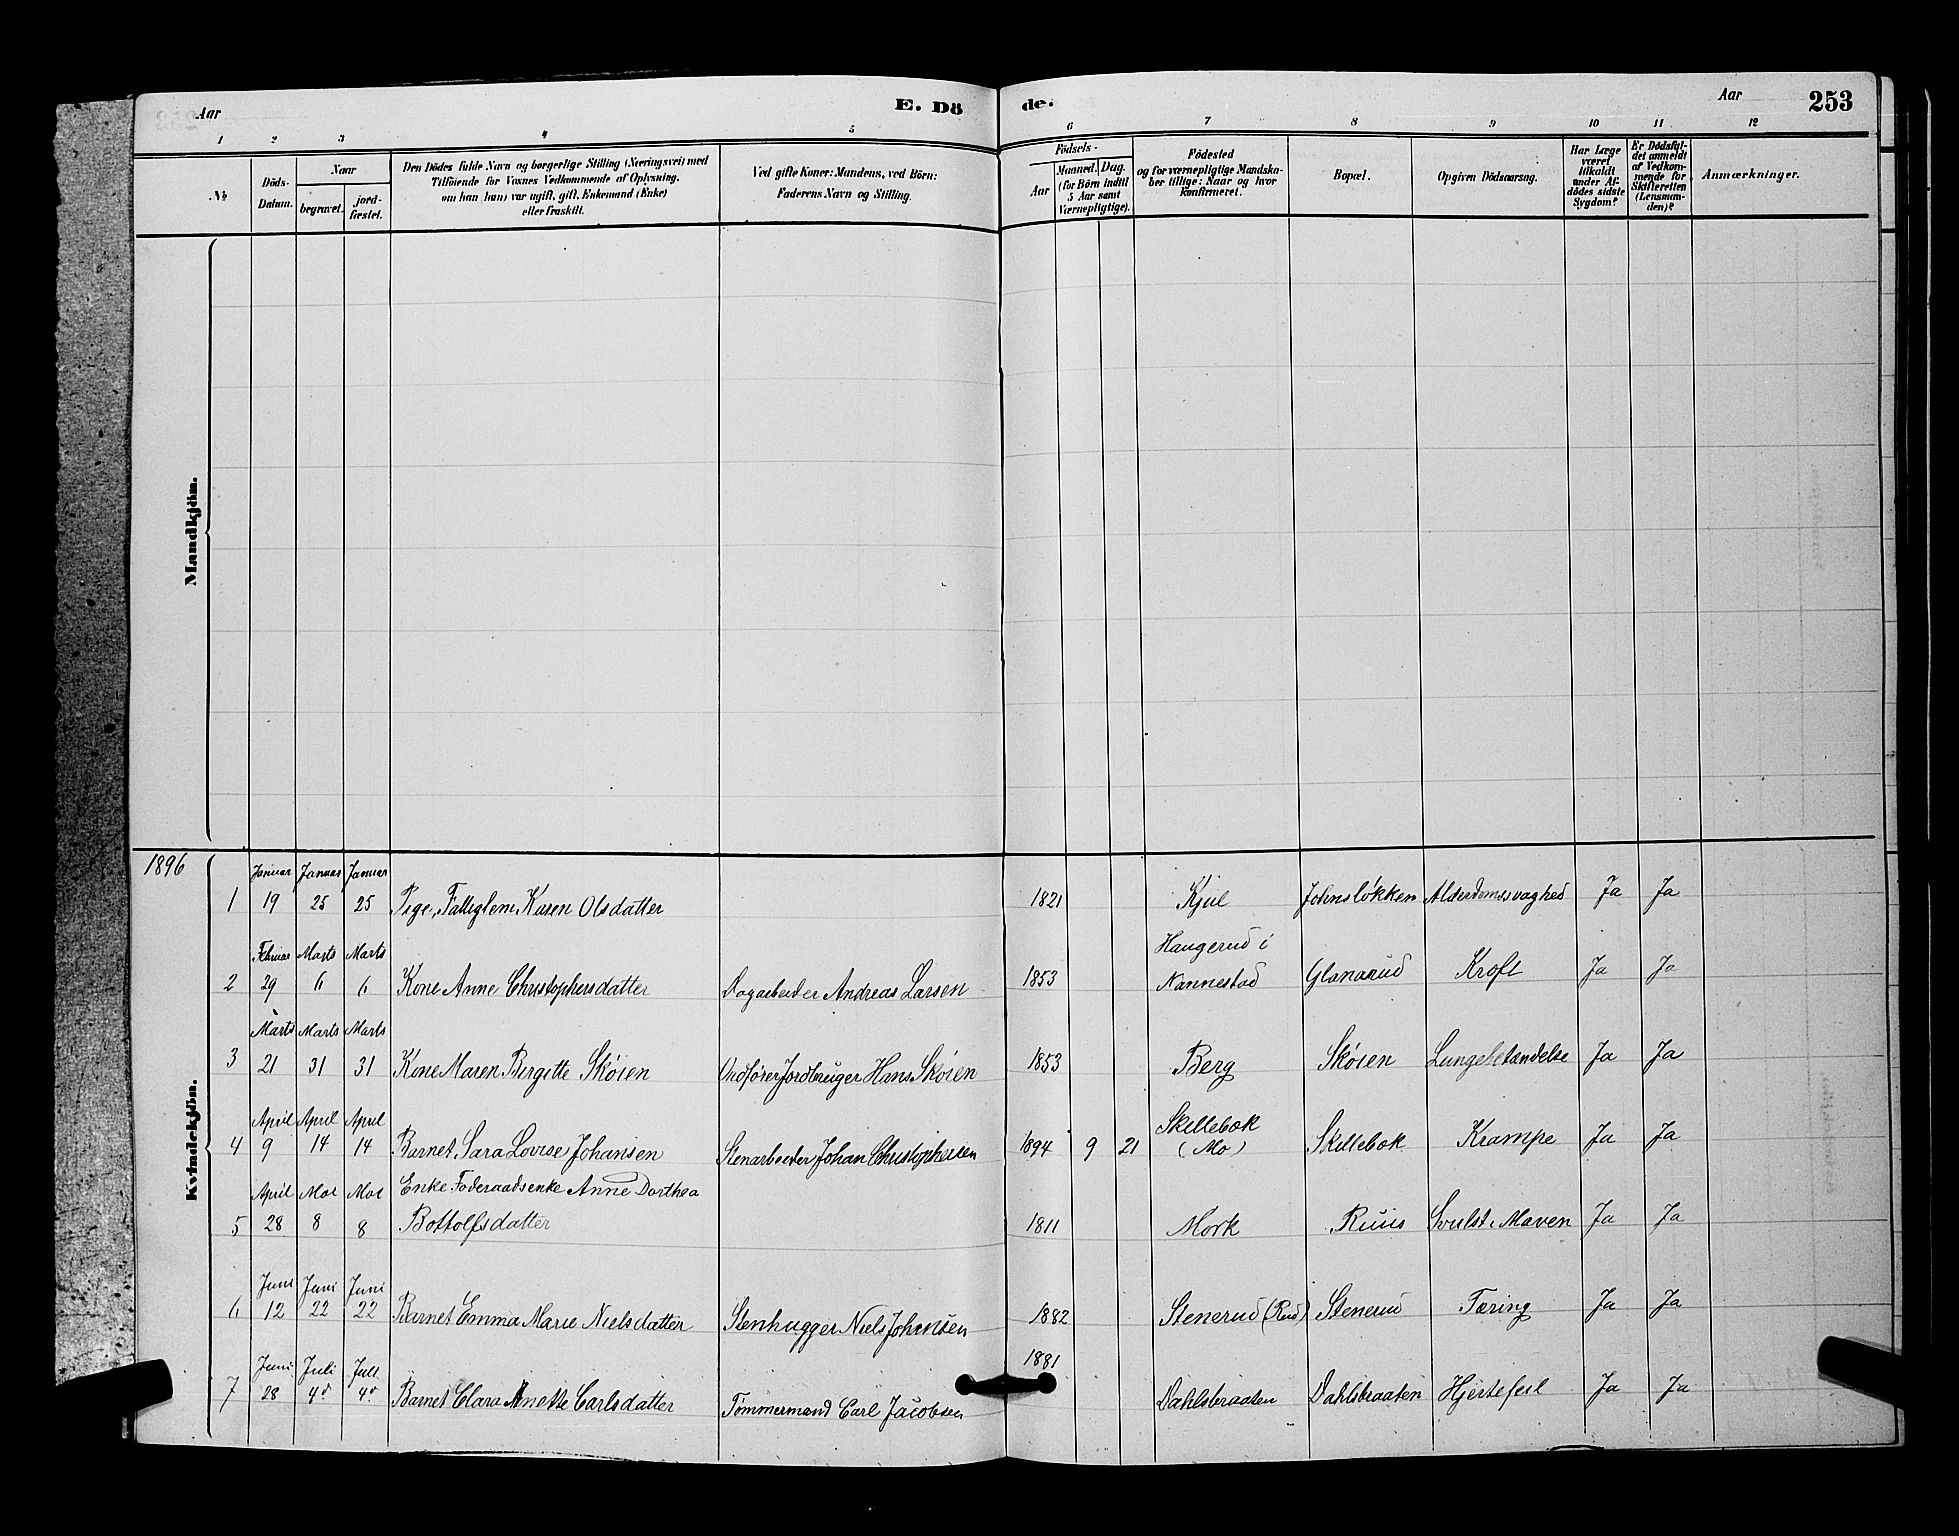 Aar E. Dö de. Aar 253
1 2 3 4 5 6 7 8 9 10 11 12
No
Döds-
Datum.
Naar
begravet.
jord-
fæstet.
Den Dödes fulde Navn og borgerlige Stilling (Næringsvei) med
Tilföiende for Voxnes Vedkommende af Oplysning,
om han (hun) var ugift, gift, Enkemand (Enke)
eller fraskilt.
Ved gifte Koner: Mandens, ved Börn:
Faderens Navn og Stilling.
Födsels-
Aar
Maaned. Dag.
(for Börn indtil
5 Aar samt
Værnepligtige).
Födested
og for værnepligtige Mandska-
ber tillige: Naar og hvor
konfirmeret.
Bopæl.
Opgiven Dödsaarsag.
Har Læge
været
tilkaldt
under Af-
dödes sidste
Sygdom?
Er Dödsfal-
det anmeldt
af Vedkom-
mende for
Skifteretten
(Lensman-
den)?
Anmærkninger.
Mandkjön.
Kvindekjön.
1896
Januar Januar Januar
1 19 25 25 Pige, Fattiglem Karen Olsdatter 1821 Kjul Johnsløkken Alderdomssvaghed Ja Ja
Februar Marts Marts Haugerud i
2 29 6 6 Kone Anne Christophersdatter Dagarbeider Andreas Larsen 1853 Nannestad Glanarud Kræft Ja Ja
Marts Marts Marts
3 21 31 31 Kone Maren Birgitte Skøien Ordfører Jordbruger Hans Skøien 1853 Berg Skøien Lungebetændelse Ja Ja
April April April Skillebæk
4 9 14 14 Barnet Sara Lovise Johansen Stenarbeider Johan Christophersen 1894 9 21 (Mo) Skillebæk Krampe Ja Ja
April Mai Mai Enke Føderaadsenke Anne Dorthea
5 28 8 8 Bottolfsdatter 1811 Mork Ruus Svulst i Maven Ja Ja
Juni Juni Juni
6 12 22 22 Barnet Emma Marie Nielsdatter Stenhugger Niels Johansen 1882 Stenerud (Rud) Stenerud Tæring Ja Ja
Juni Juli Juli 1881
7 28 4de 4de Barnet Clara Anette Carlsdatter Tømmermand Carl Jacobsen Dahlsbraaten Dahlsbraaten Hjertefeil Ja Ja